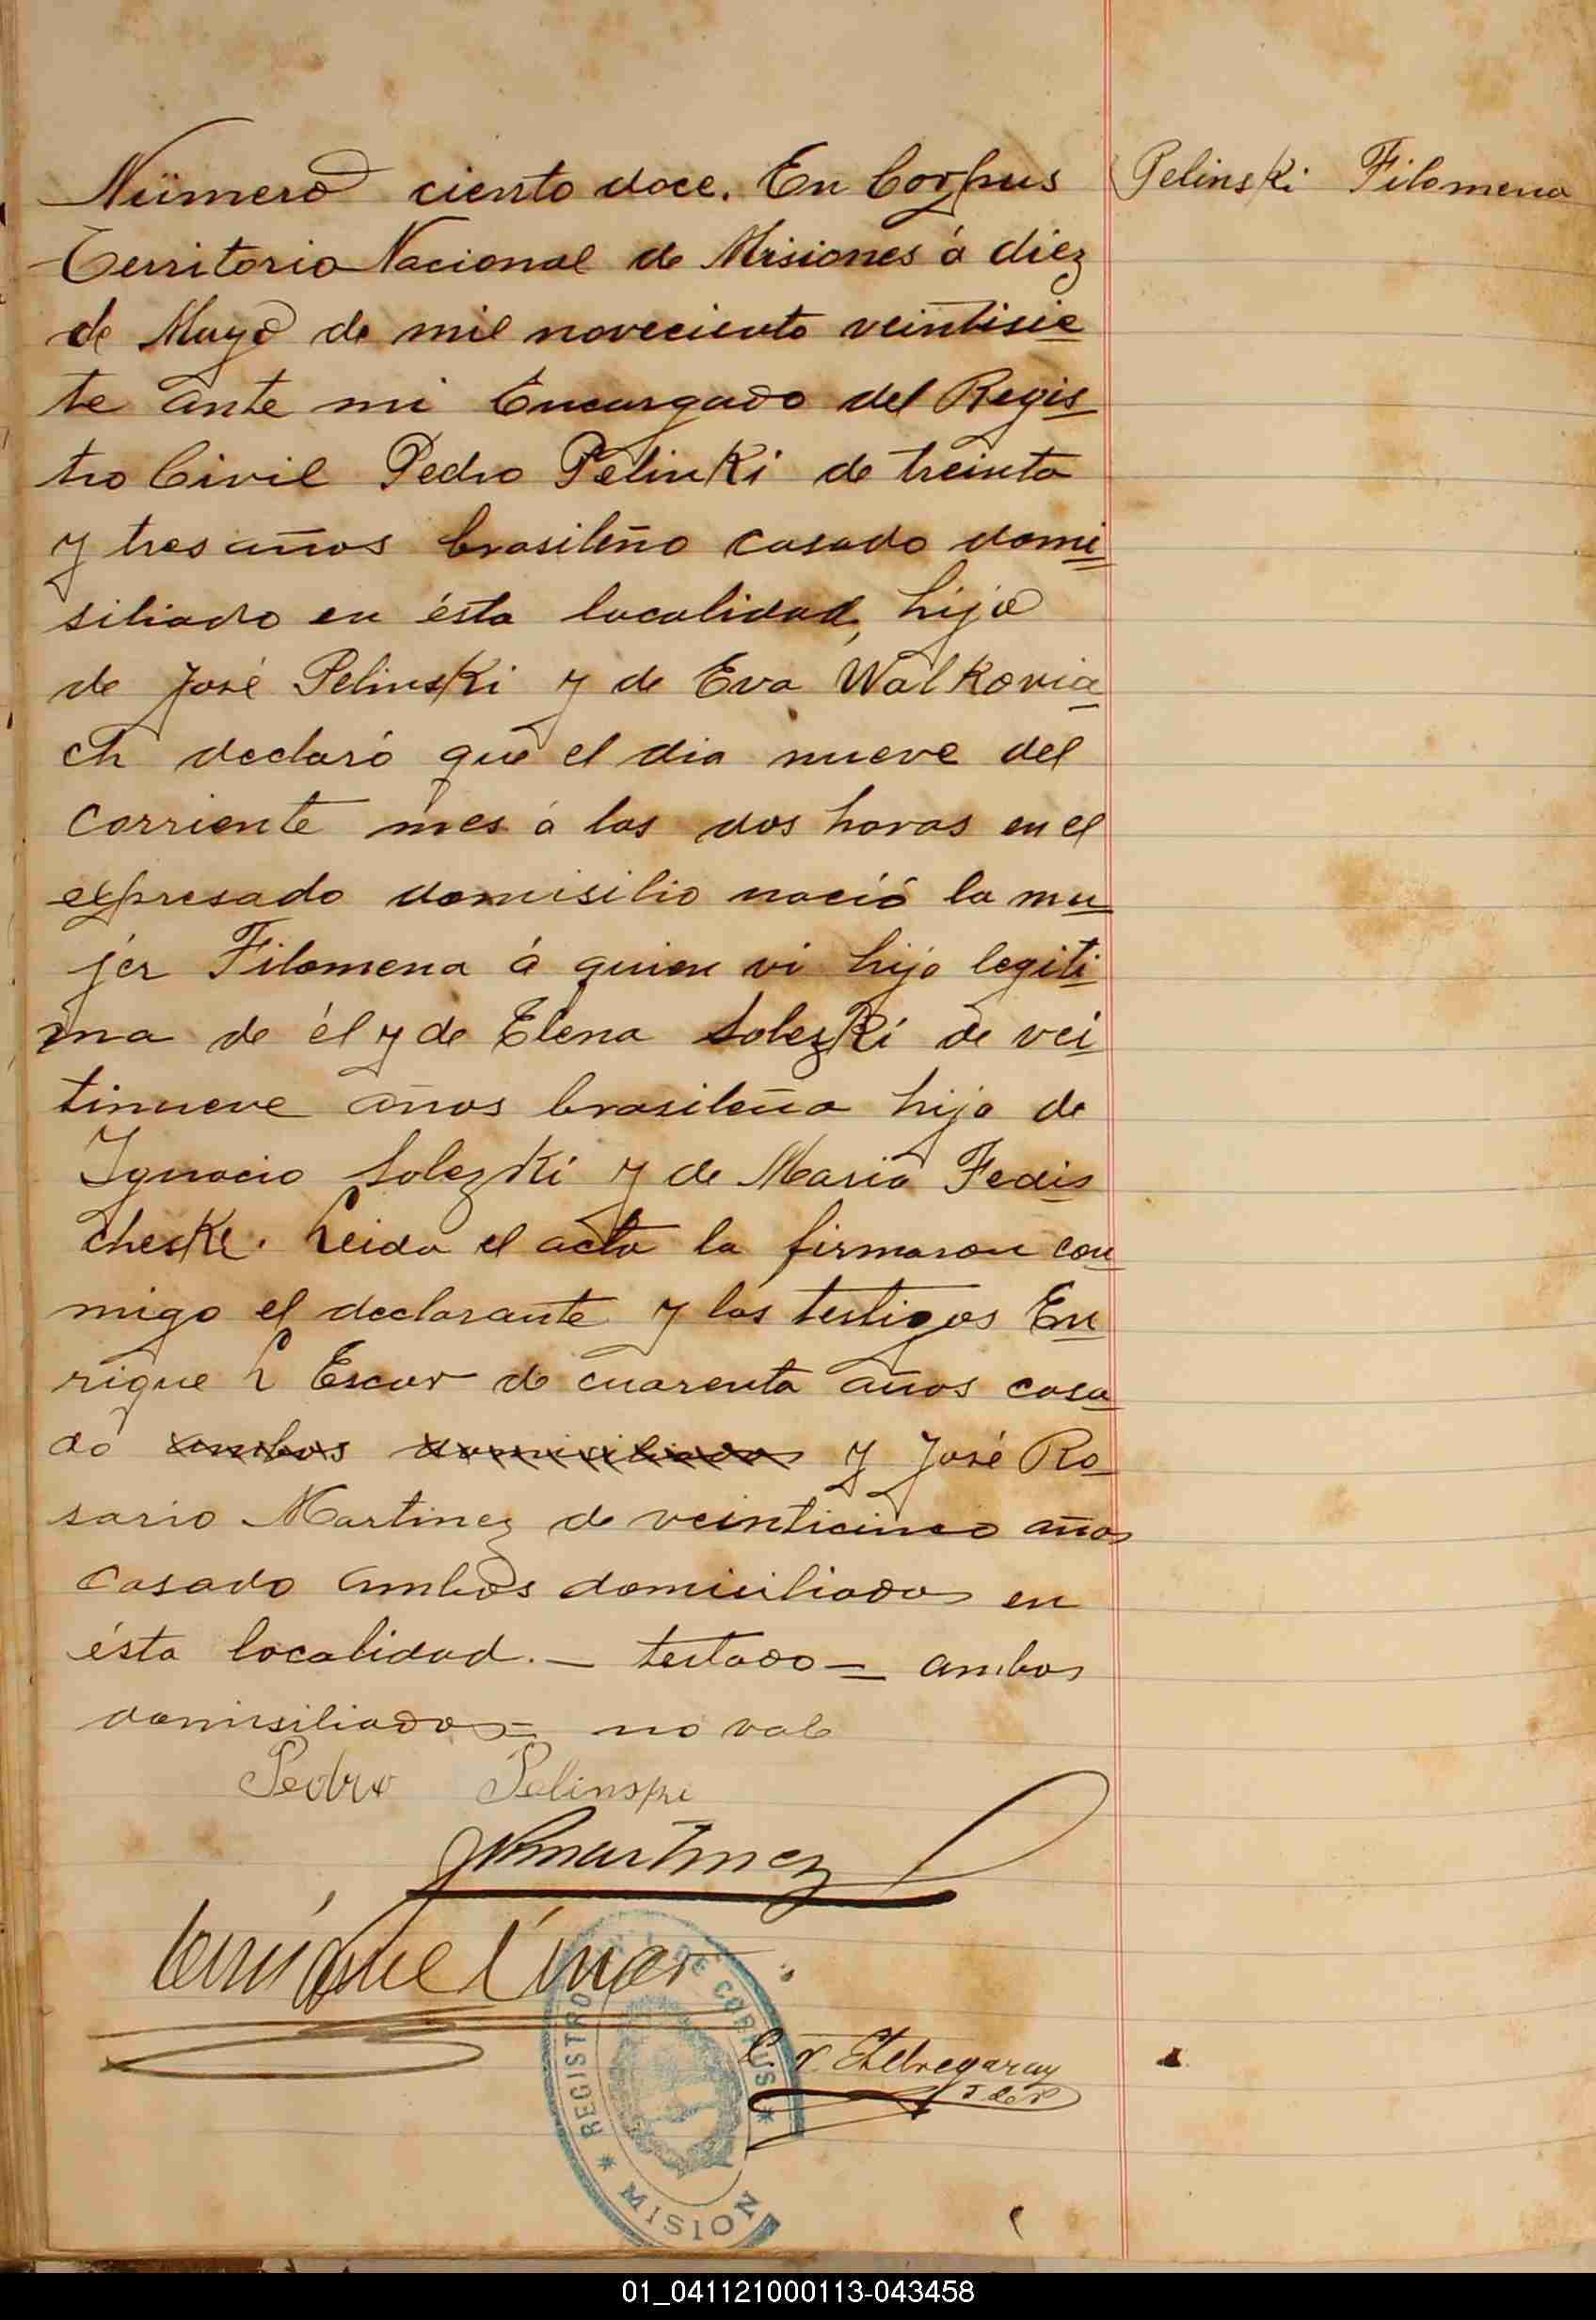 Número ciento doce. En Corpus
Pelinski Filomena
Territorio Nacional de Misiones á diez
de Mayo de mil noveciento veintisie
te ante mi Encargado del Regis
tro Civil Pedro Pelinki de treinta
y tres años brasileño casado domi
siliado en ésta localidad, hijo
de José Pelinski y de Eva Walkovia
ch declaró que el dia nueve del
corriente mes á las dos horas en el
expresado domisilio nació la mu
jer Filomena á quien vi hija legiti
ma de él y de Elena Solezki de vei
tinueve años brasileña hija de
Ignacio Solezki y de Maria Fedis
cheske. Leida el acta la firmaron con
migo el declarante y los testigos En
rique L Escar de cuarenta años casa
do ambos domisiliados y José Ro
sario Martinez de veinticinco años
casado ambos domiciliados en
ésta localidad. — testado = ambos
domisiliados = no vale
Pedro Pelinski
JRMartinez
Enrique
Etchegaray
REGISTRO DE CORPUS
MISION
01_041121000113-043458